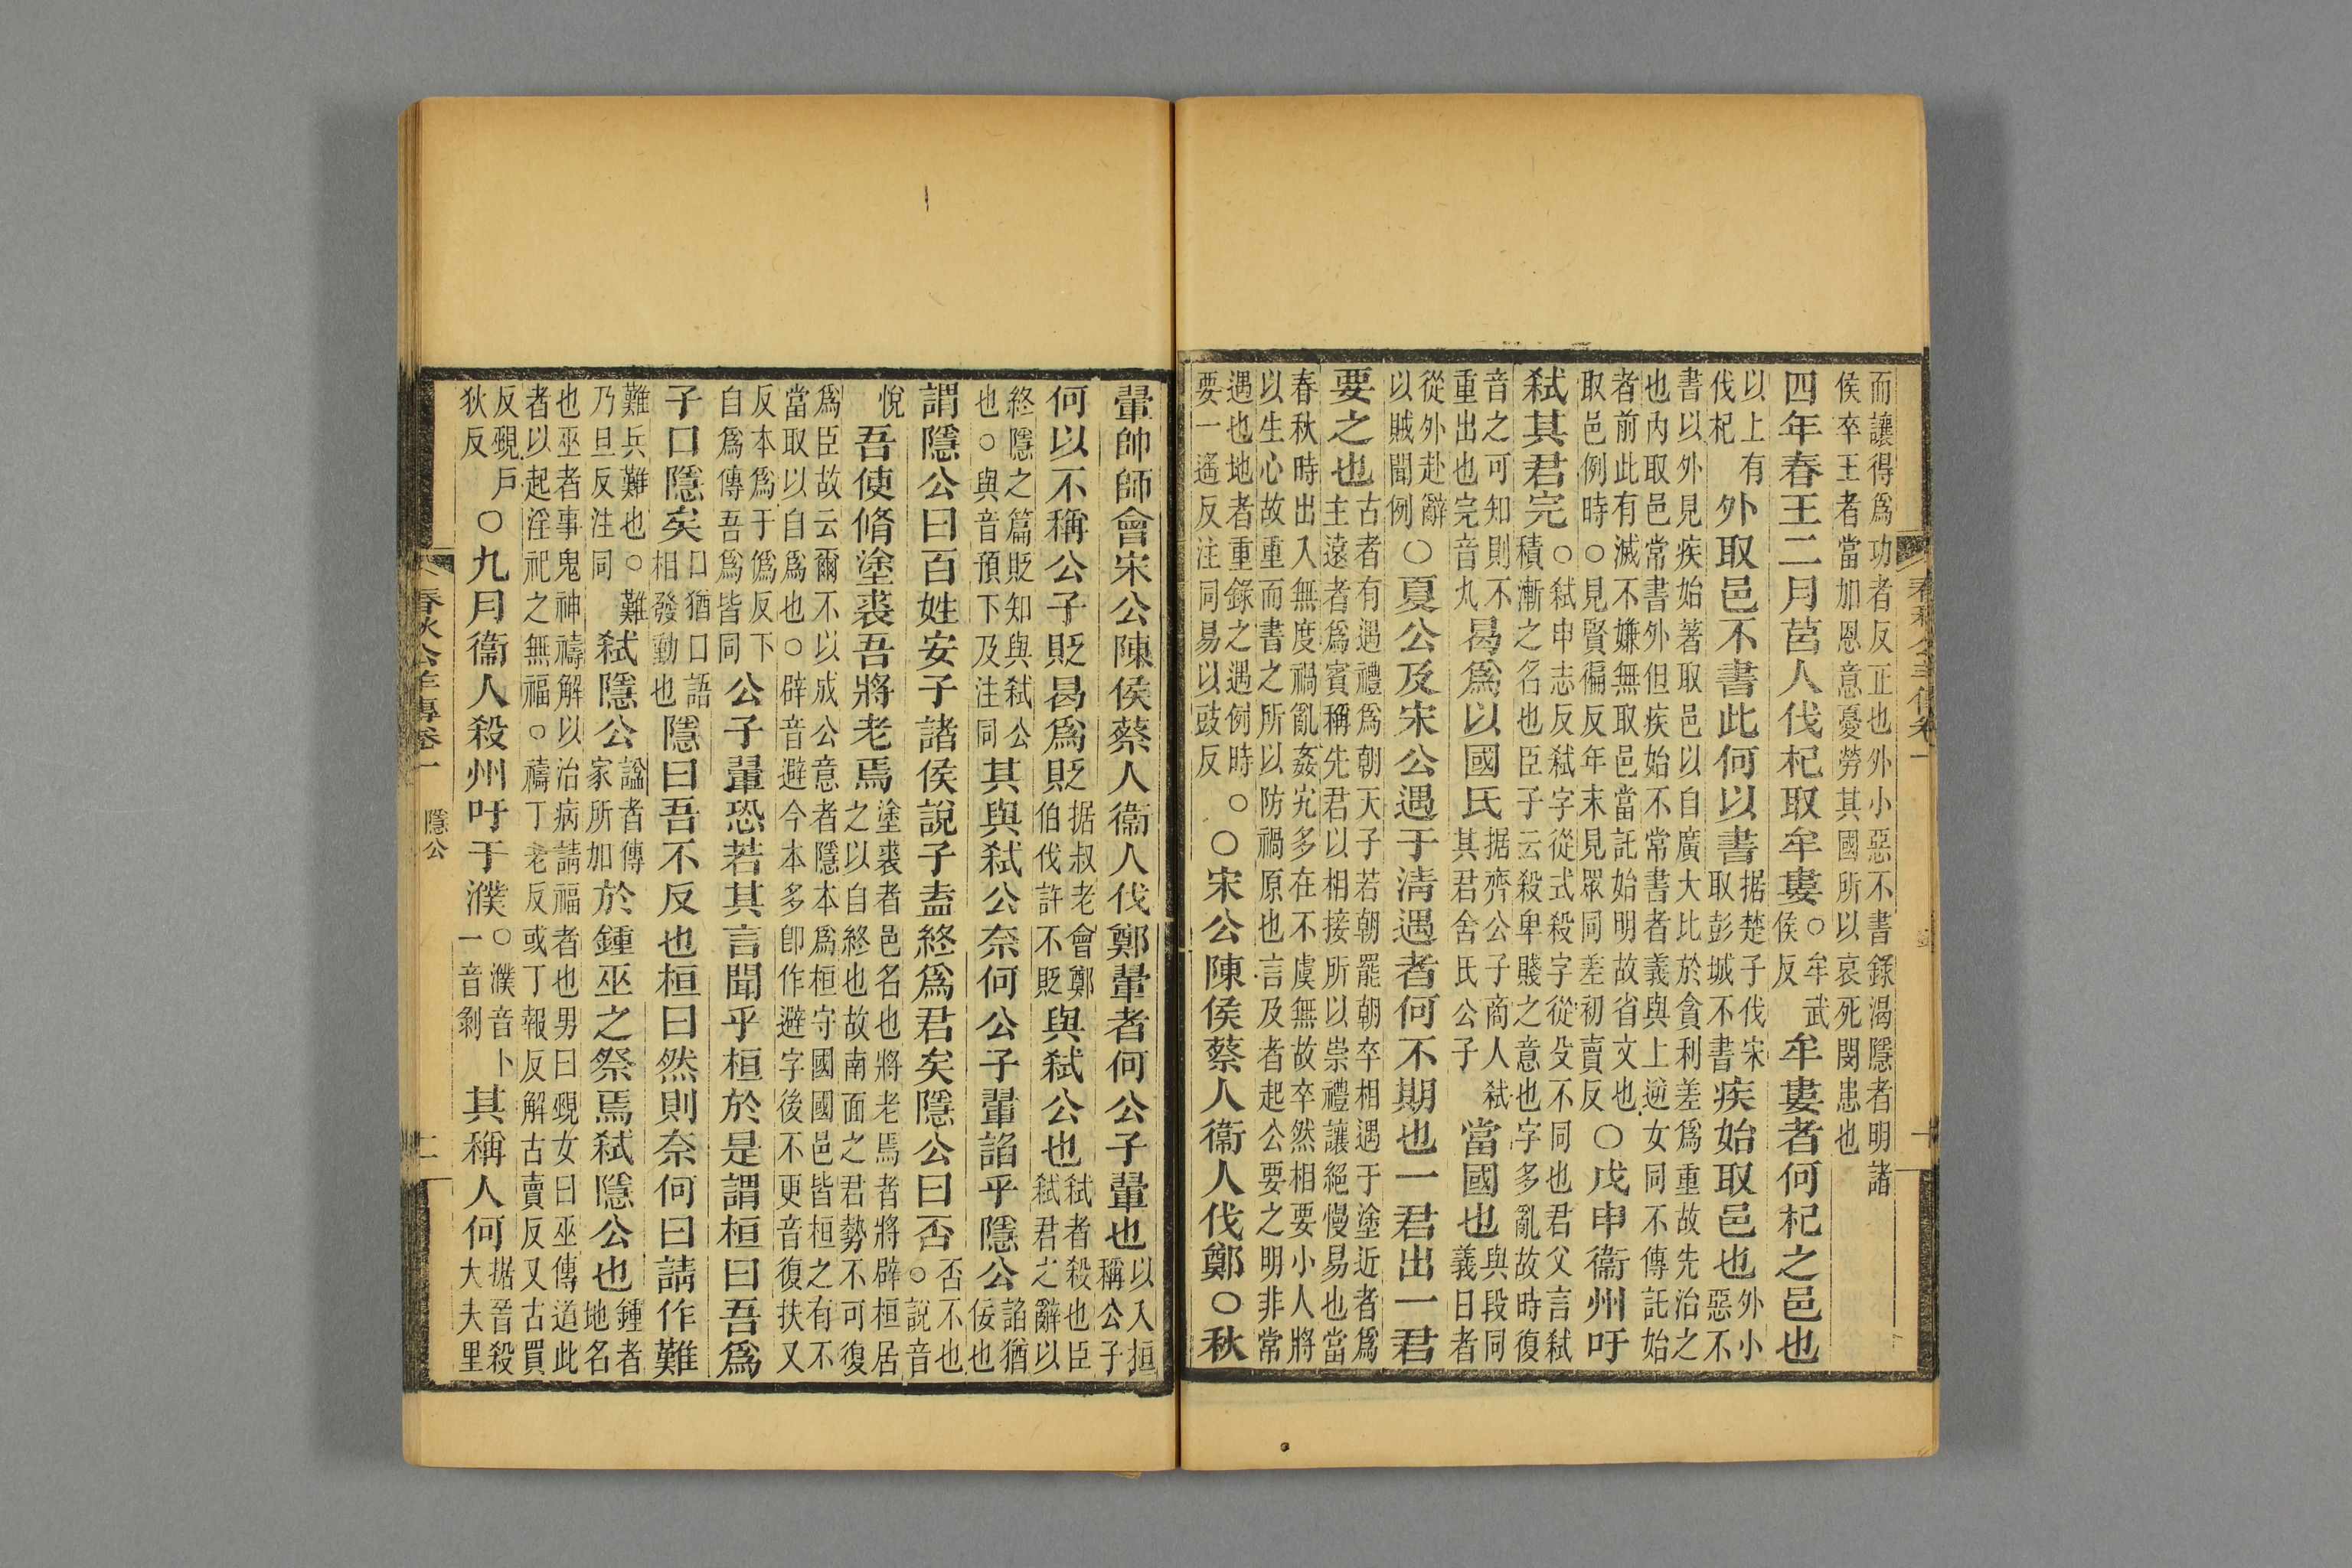 而讓得爲功者反正也外小惡不書錄渴隱者明諸
侯卒王者當加恩意憂勞其國所以哀死閔患也
四年春王二月莒人伐杞取牟婁○牟武侯反牟婁者何杞之邑也
以上有伐杞外取邑不書此何以書据楚子伐宋取彭城不書疾始取邑也外小惡不
書以外見疾始著取邑以自廣大比於貪利差爲重故先治之
也内取邑常書外但疾始不常書者義與上逆女同不傳託始
者前此有滅不嫌無取邑當託始明故省文也取邑例時○見賢徧反年末見眾同差初賣反○戊申衞州吁
弑其君完○弑申志反弑字從式殺字從殳不同也君父言弑積漸之名也臣子云殺卑賤之意也字多亂故時復
音之可知則不重出也完音丸曷爲以國氏据齊公子商人弑其君舍氏公子當國也與段同義日者
從外赴辭以賊聞例○夏公及宋公遇于清遇者何不期也一君出一君
要之也古者有遇禮爲朝天子若朝罷朝卒相遇于塗近者爲主遠者爲賓稱先君以相接所以崇禮讓絕慢易也當
春秋時出入無度禍亂姦宄多在不虞無故卒然相要小人將
以生心故重而書之所以防禍原也言及者起公要之明非常
遇也地者重錄之遇例時○要一遙反注同易以豉反○宋公陳侯蔡人衞人伐鄭○秋
翬帥師會宋公陳侯蔡人衞人伐鄭翬者何公子翬也以入桓稱公子
何以不稱公子貶曷爲貶据叔老會鄭伯伐許不貶與弑公也弑者殺也臣弑君之辭以
終隱之篇貶知與弑公也○與音預下及注同其與弑公奈何公子翬諂乎隱公諂猶佞也
謂隱公曰百姓安子諸侯說子盍終爲君矣隱公曰否否不也○說音
悅吾使脩塗裘吾將老焉塗裘者邑名也將老焉者將辟桓居之以自終也故南面之君勢不可復
爲臣故云爾不以成公意者隱本爲桓守國國邑皆桓之有不
當取以自爲也○辟音避今本多卽作避字後不更音復扶又
反本爲于僞反下自爲傳吾爲皆同公子翬恐若其言聞乎桓於是謂桓曰吾爲
子口隱矣口猶口語相發動也隱曰吾不反也桓曰然則奈何曰請作難
難兵難也○難乃旦反注同弑隱公諡者傳家所加於鍾巫之祭焉弑隱公也鍾者地名
也巫者事鬼神禱解以治病請福者也男曰覡女曰巫傳道此
者以起淫祀之無福○禱丁老反或丁報反解古賣反又古買
反覡戶狄反○九月衞人殺州吁于濮○濮音卜一音剝其稱人何据晉殺大夫里
春秋公羊傳卷一
隱公
二